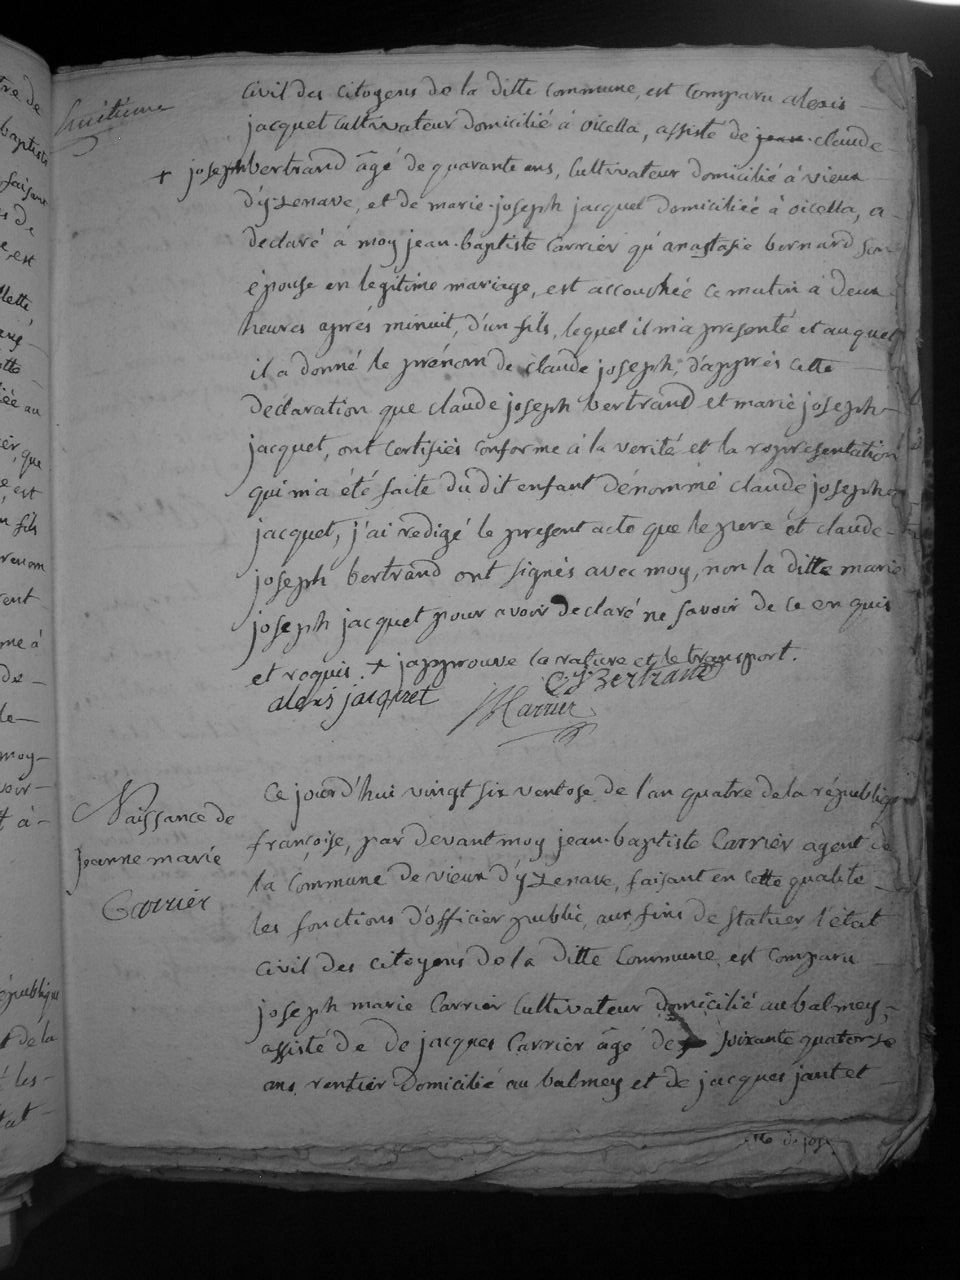 huitieme
civil des citoyens de la ditte commune, est comparu alexis
jacquet cultivateur domicilié à oicella, assisté de jean claude
+ joseph bertrand âgé de quarante ans, cultivateur domicilié à vieux
d'yzenave, et de marie joseph jacquet domiciliée à oicella, a
declaré à moy jean-baptiste Carrier qu'anastasie bernard son
épouse en legitime mariage, est accouchée ce matin à deux
heures après minuit, d'un fils, lequel il m'a presenté et auquel
il a donné le prénom de claude joseph, d'apprès cette
declaration que claude joseph bertrand et marie joseph
jacquet, ont certifiés conforme à la verité et la representation
qui m'a été faite du dit enfant dénommé claude joseph
jacquet, j'ai redigé le present acte que le pere et claude
joseph bertrand ont signés avec moy, non la ditte marie
joseph jacquet pour avoir declaré ne savoir de ce en quis
et requis. + j'approuve la rature et le transport.
alexis jacquet C J Bertrand
Carrier
Naissance de
jeanne marie
Carrier
Ce jourd'hui vingt six ventose de l'an quatre de la républiq
françoise, par devant moy jean-baptiste Carrier agent de
la Commune de vieux d'yzenave, faisant en cette qualité
les fonctions d'officier public, aux fins de statuer l'état
civil des citoyens de la ditte Commune, est comparu
joseph marie Carrier Cultivateur domicilié au balmey,
assisté de de jacques Carrier âgé de soixante quatorze
ans rentier domicilié au balmey et de jacques jantet